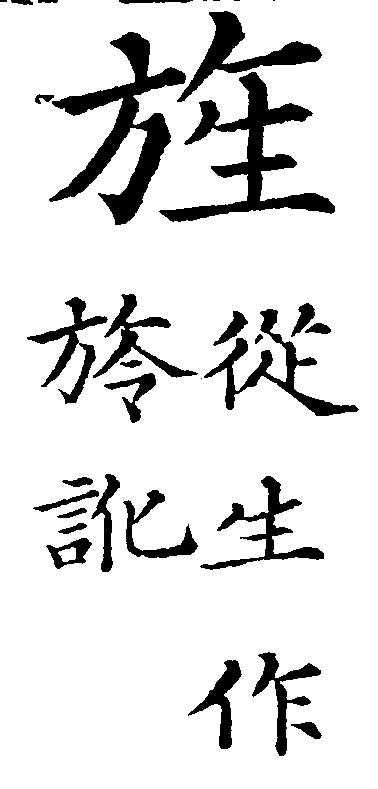 旌
從生作
㫌訛